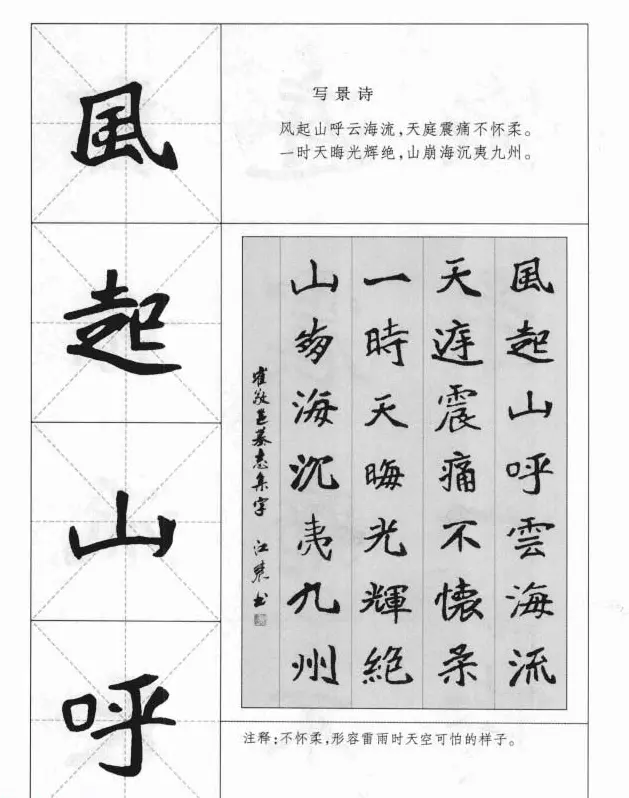 風
起
山
呼
写景诗
风起山呼云海流，天庭震痛不怀柔。
一时天晦光辉绝，山崩海沉夷九州。
風起山呼雲海流
天庭震痛不懷柔
一時天晦光輝絕
山崩海沉夷九州
崔敬邕墓志集字 江书
注释：不怀柔，形容雷雨时天空可怕的样子。